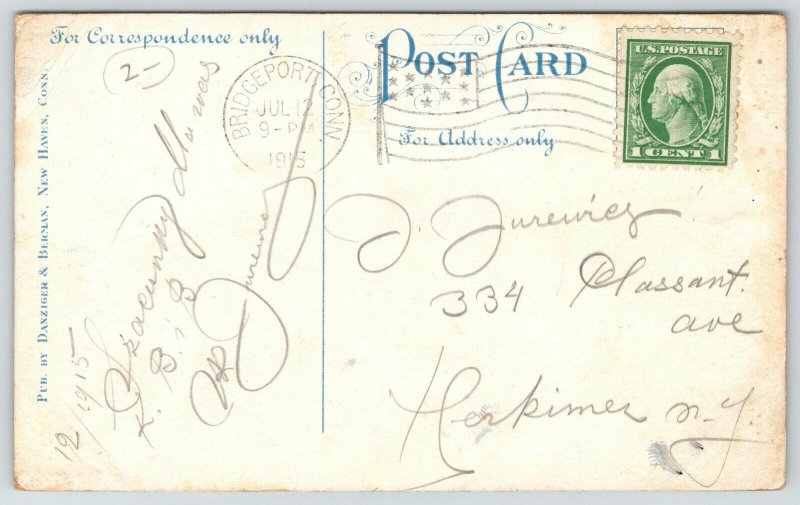 For Correspondence only
POST CARD
For Address only
U.S. POSTAGE
1 CENT 1
BRIDGEPORT, CONN.
JUL 12
9-PM
1915
PUB. BY DANZIGER & BERMAN, NEW HAVEN, CONN.
2-
J. Jurewicz
334 Plassant.
ave
Herkimer N.Y.
12/1915